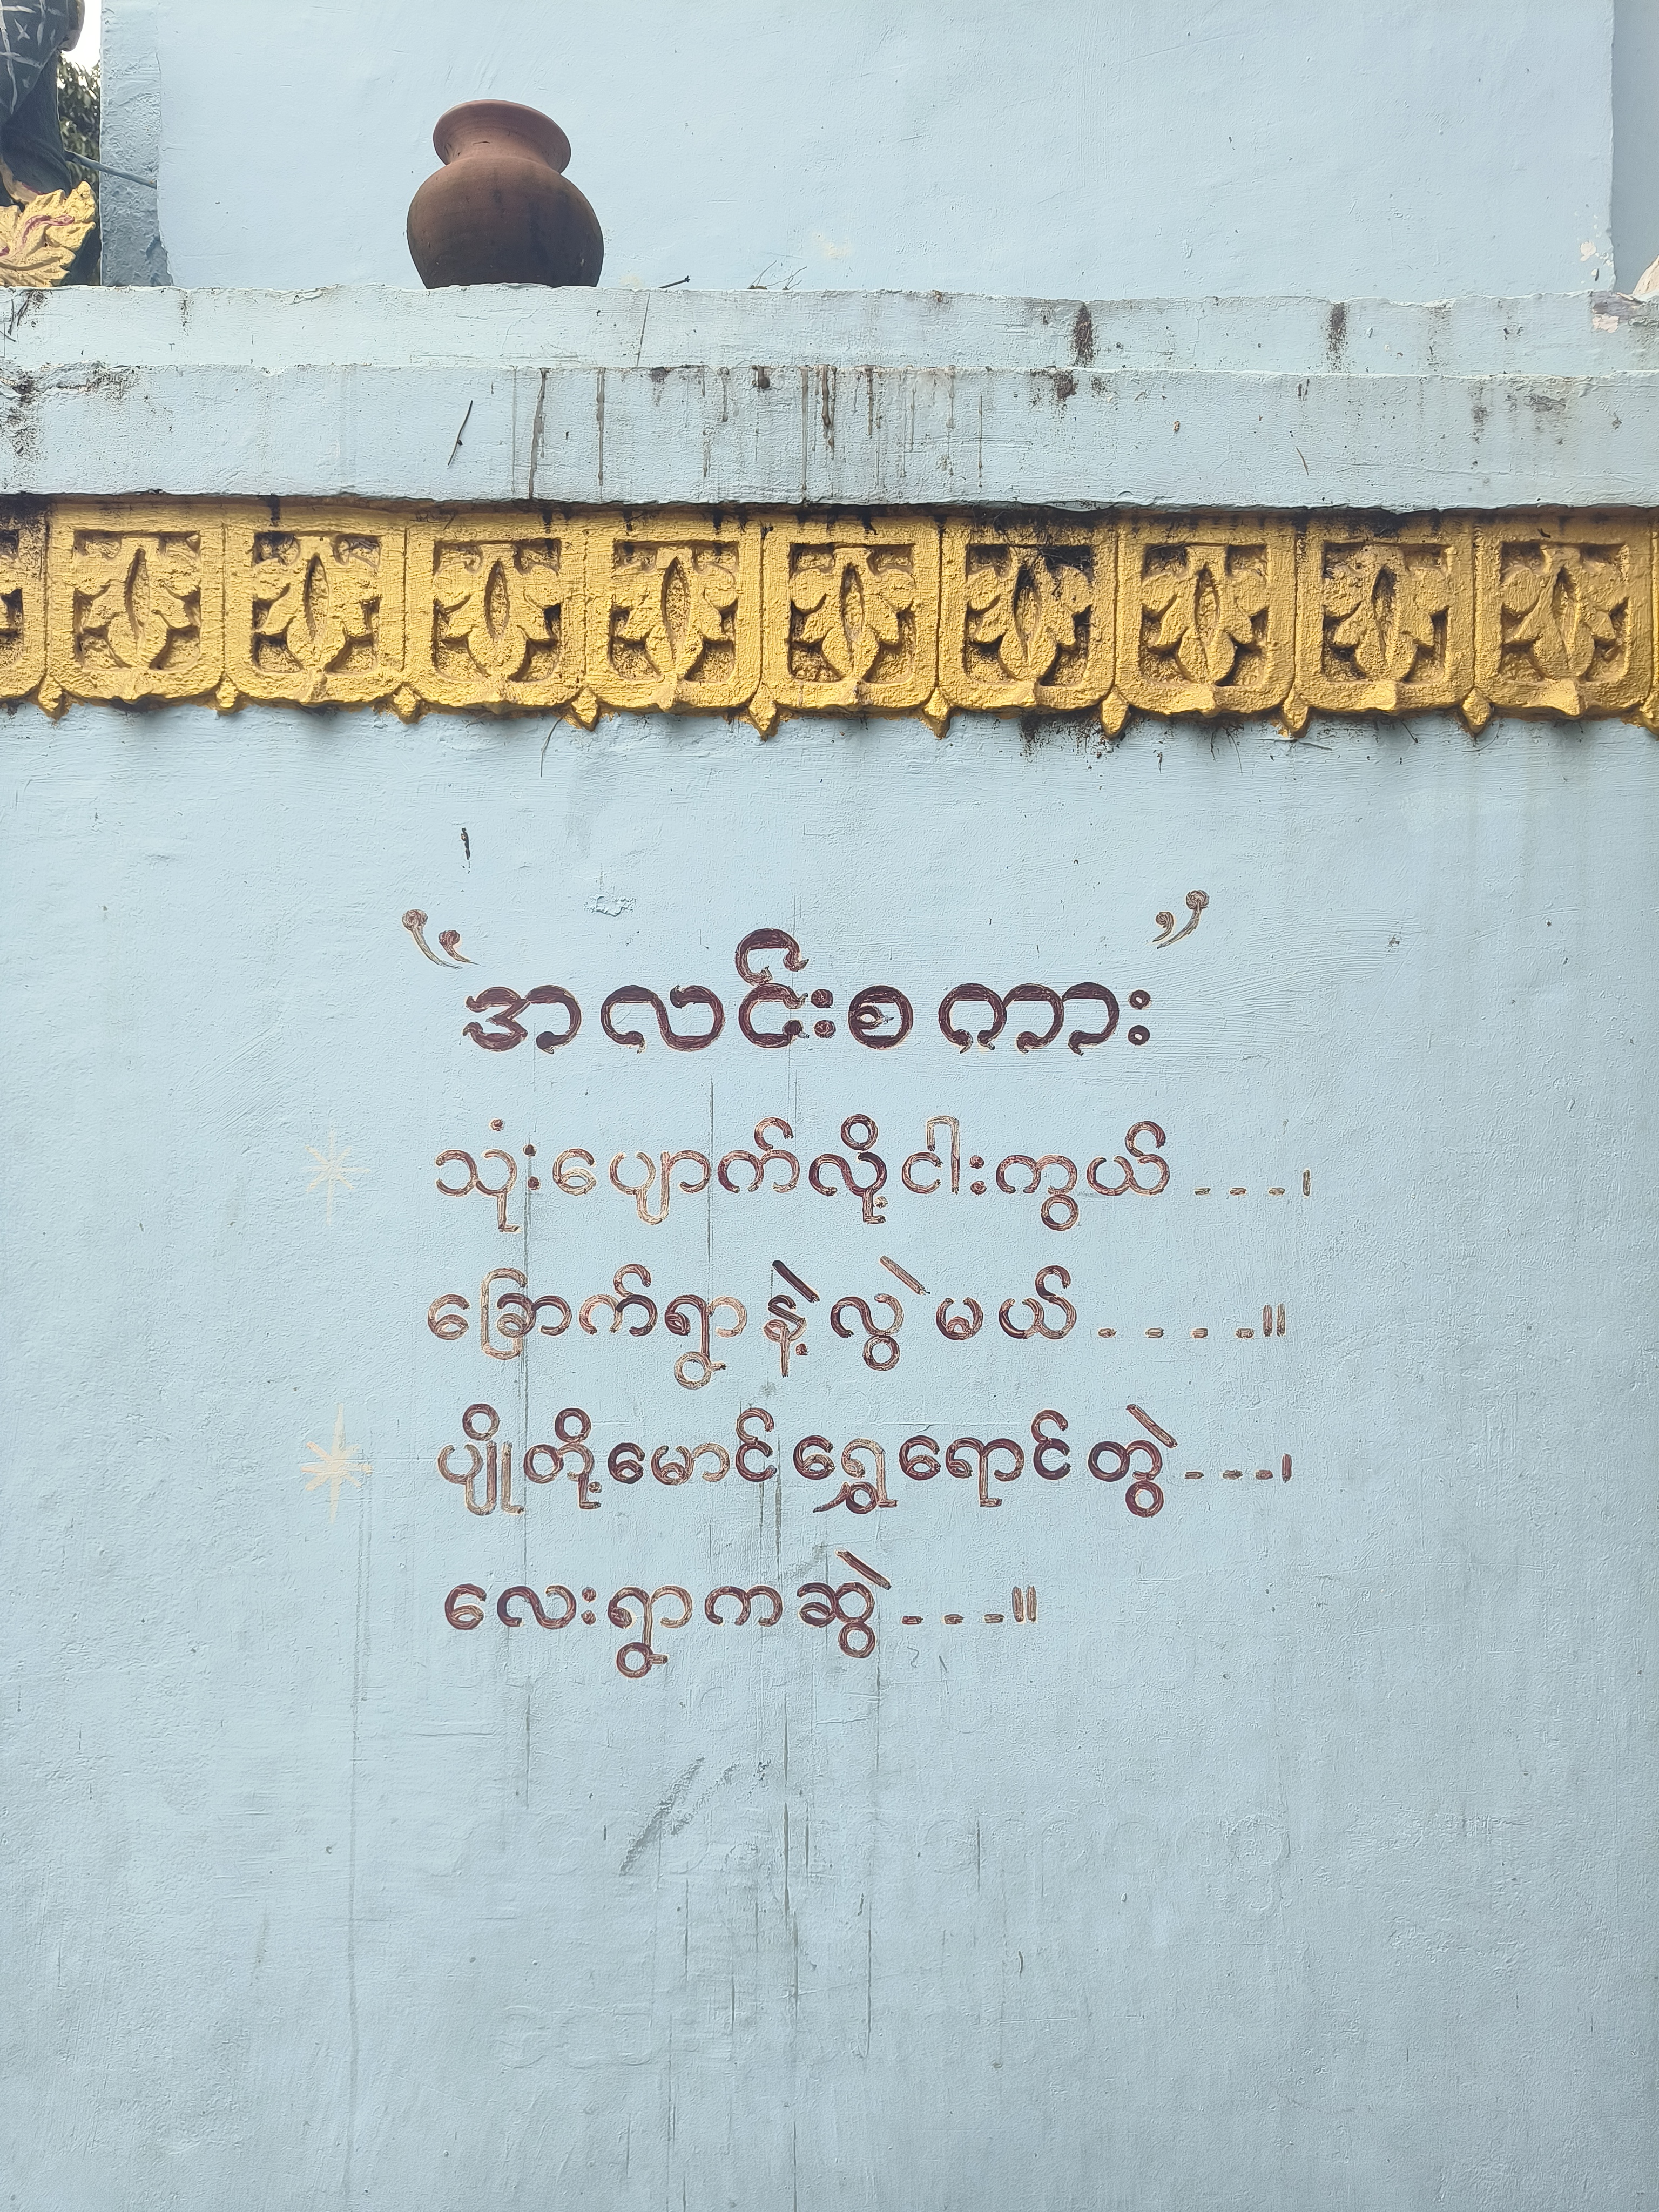 “အလင်းစကား”
သုံးပျောက်လို့ငါးကွယ်....၊
ခြောက်ရွာနဲ့လွဲမယ်....။
ပျိုတို့မောင်ရွှေရောင်တွဲ...၊
လေးရွာကဆွဲ...။